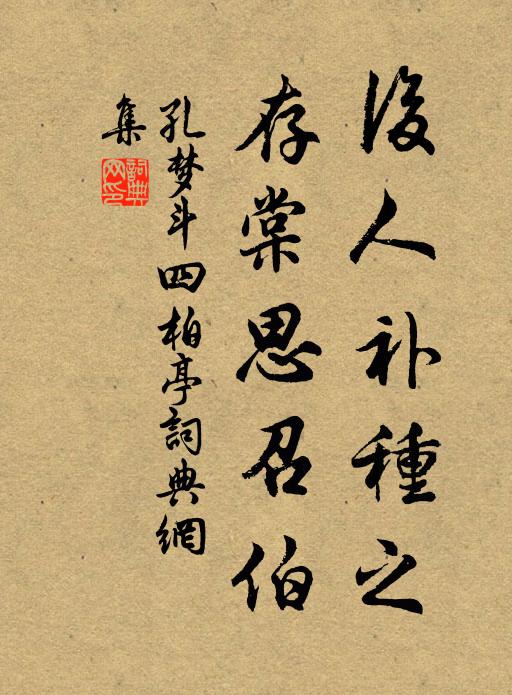 後人补種之
存棠思召伯
孔梦斗四柏亭詞典網
集
詞典網印